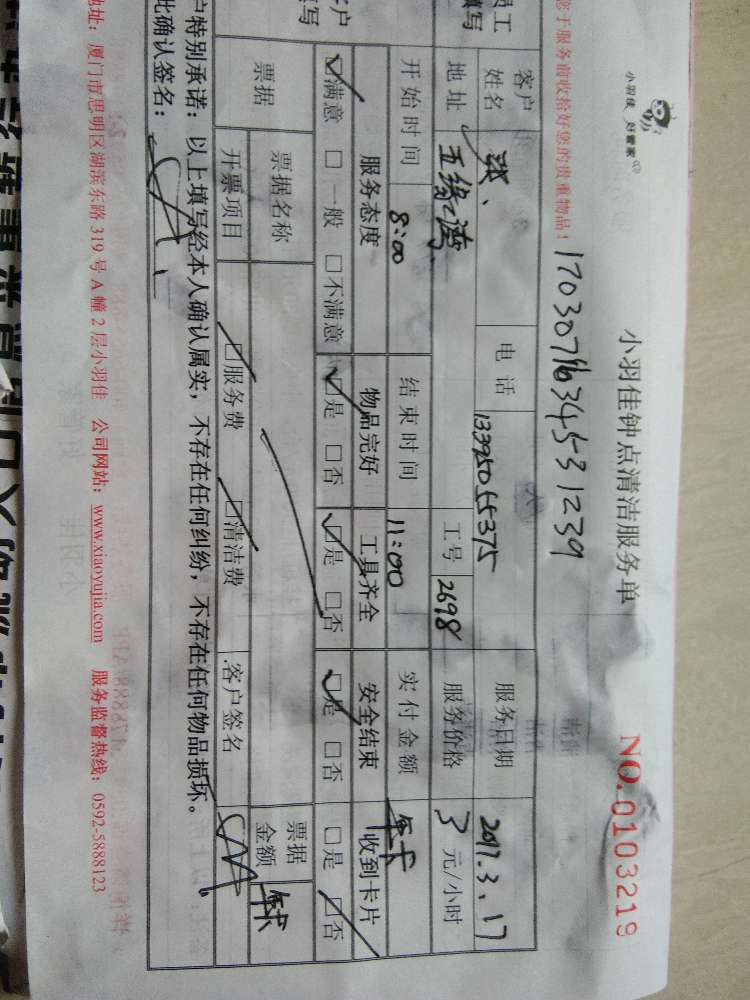 小羽佳 好管家
小羽佳钟点清洁服务单
NO.0103219
您于服务前收拾好您的贵重物品!
1703071634531239
员工
填写
客户
姓名
张、
电话
13395055375
服务日期
2017.3.17
地址
五缘湾
工号
2698
服务价格
3 元/小时
开始时间
8:00
结束时间
11:00
实付金额
年卡
户
写
服务态度
物品完好
工具齐全
安全结束
收到卡片
☑满意 □一般 □不满意
☑是 □否
☑是 □否
☑是 □否
□是 ☑否
票据
票据名称
票据
金额
年卡
开票项目
☑服务费 ☑清洁费
客户签名
户特别承诺:以上填写经本人确认属实,不存在任何纠纷,不存在任何物品损坏。
此确认签名:
地址:厦门市思明区湖滨东路 319 号 A 幢 2 层小羽佳 公司网站:www.xiaoyujia.com 服务监督热线:0592-5888123